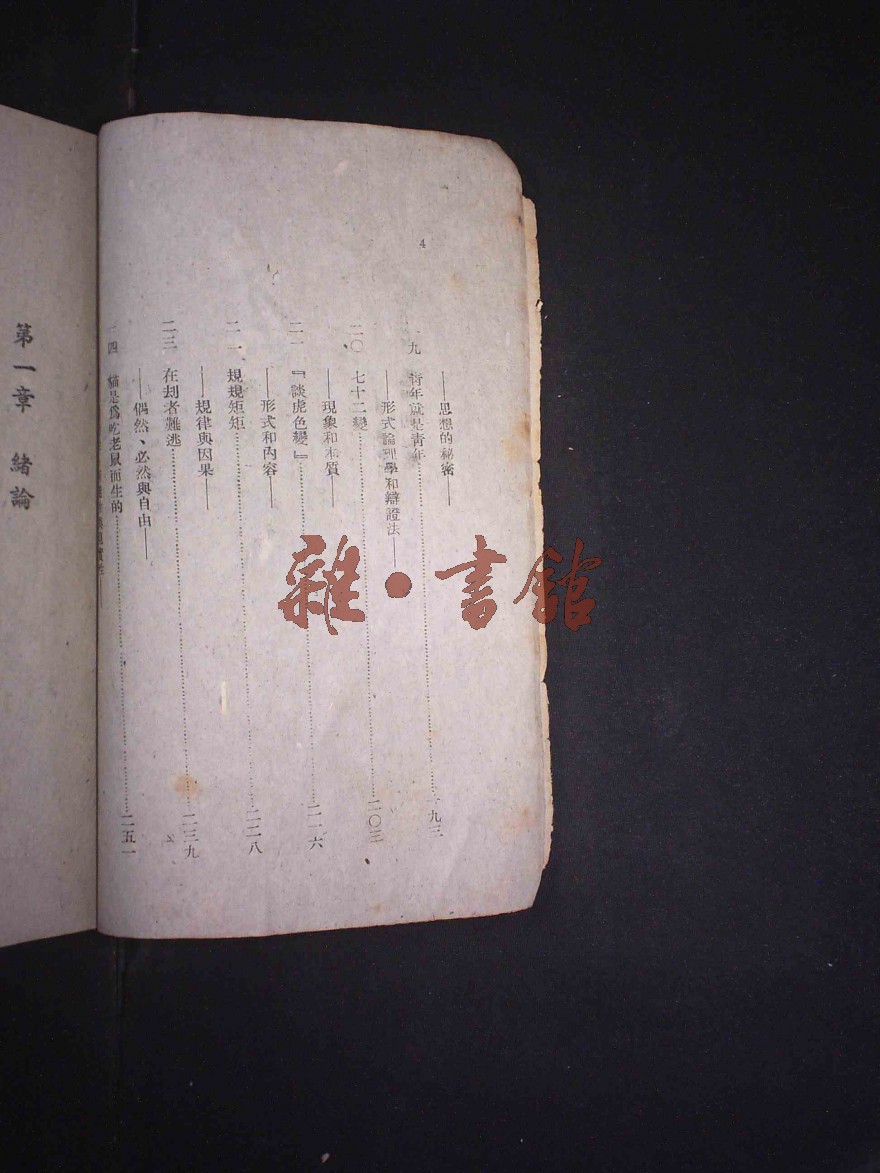 4
——思想的秘密——
一九 青年就是青年……一九三
——形式論理學和辯證法——
二〇 七十二變……二〇三
——現象和本質——
二一 『談虎色變』……二一六
——形式和內容——
二二 規規矩矩……二二八
——規律與因果——
二三 在刦者難逃……二三九
——偶然、必然與自由——
二四 貓是爲吃老鼠而生的……二五一
實性——
第一章 緒論
雜·書館